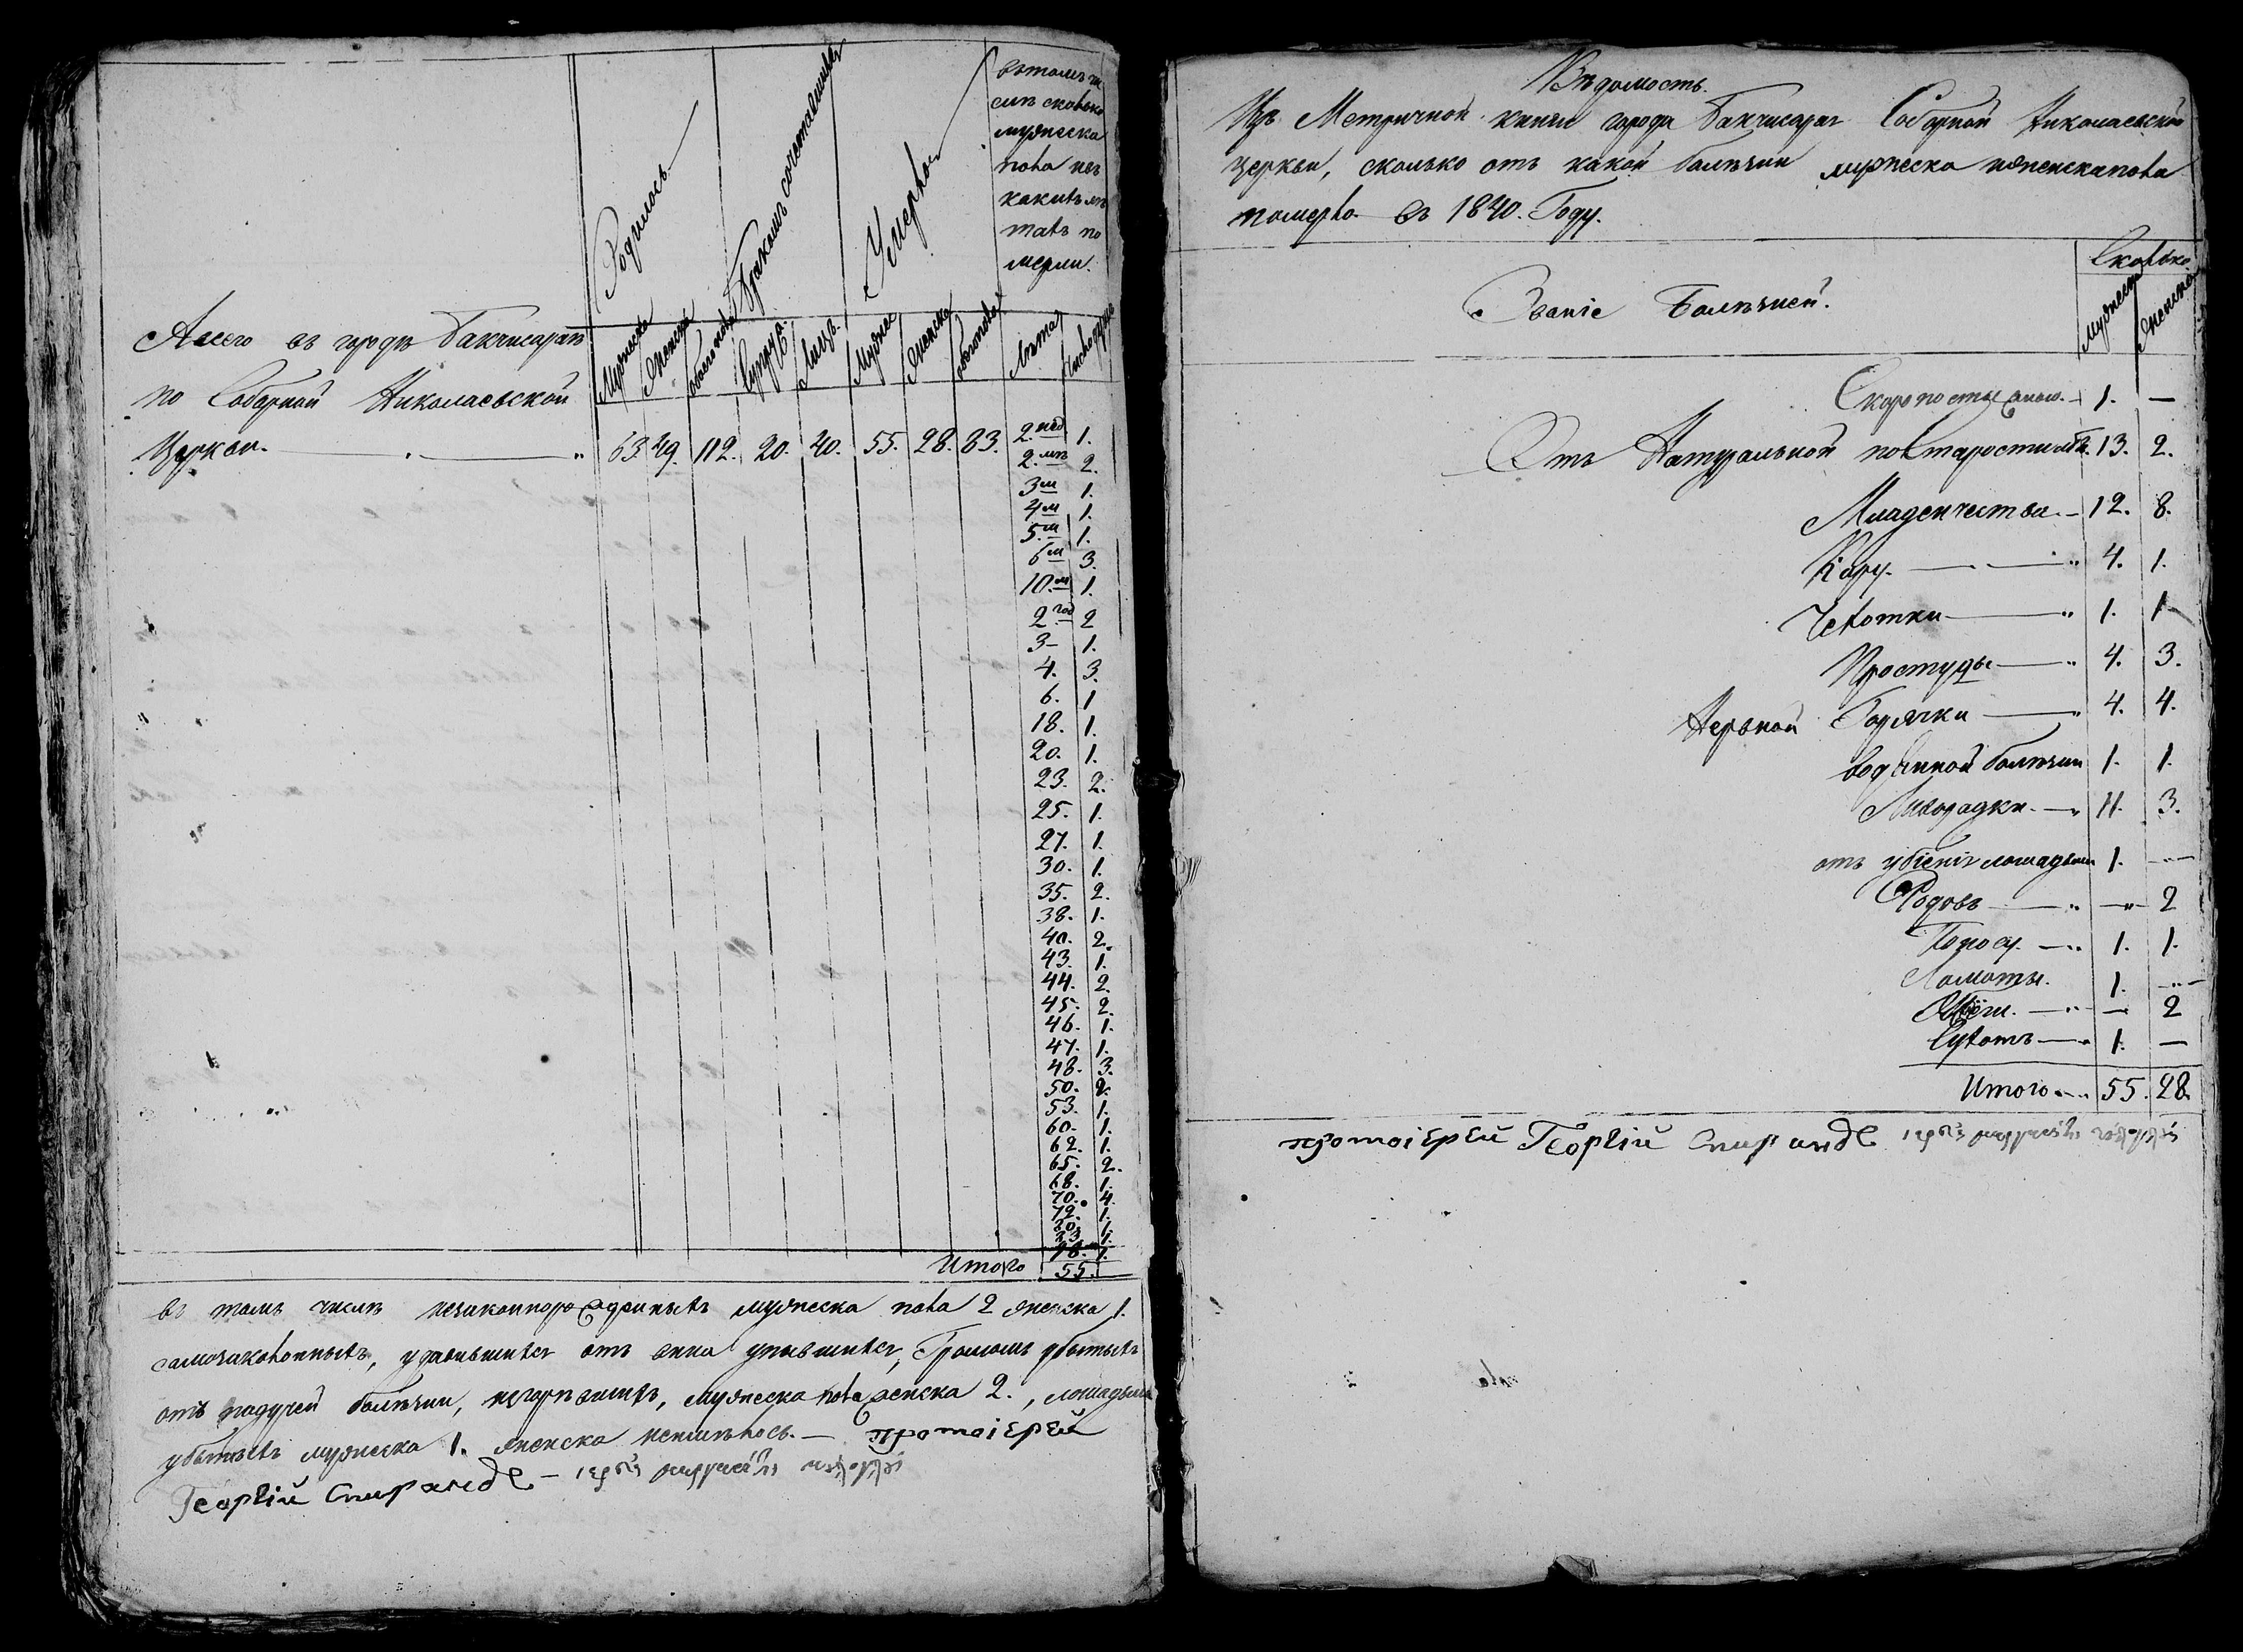 Родилось
Бракомъ сочетавшихся
Умерло
въ томъ чи
слѣ сколько
мужеска
пола и въ
какихъ лѣ
тахъ по
мерли.
Мужеска
Женска
обоего пола
Супруж.
Лицъ.
Мужес
Женска
обоего пола
Лѣта
Число душъ
Всего въ городѣ Бакчисараѣ
по Соборной Николаевской
Церкви. 63. 49. 112. 20. 40. 55. 28. 83. 2. нед 1.
2. мѣ 2.
3 м 1.
4 м 1.
5. м 1.
6 м 3.
10. м 1.
2 год 2
3 – 1.
4. 3.
6. 1
18. 1.
20. 1.
23. 2.
25. 1.
27. 1.
30. 1.
35. 2.
38. 1.
40. 2.
43. 1.
44. 2.
45. 2.
46. 1.
47. 1.
48. 3.
50. 2.
53. 1.
60. 1.
62. 1.
65. 2.
68. 1.
70. 4.
72. 1.
80. 1.
83. 1.
98. 1.
Итого 55.
въ томъ числѣ незаконнорожденныхъ мужеска пола 2 женска 1.
самозаколонныхъ, удавившихся отъ вина упившихся, Громомъ убитыхъ
отъ падучей болѣзни, нѣгорѣвшихъ, мужеска пола женска 2., лошадьми
убитыхъ мужеска 1. женска неимѣлось. — протоіерей
Георгій Спиранде —
Вѣдомость.
Изъ Метричной книги города Бакчисарая Соборной Николаевской
церкви, сколько отъ какой болѣзни мужеска и женска пола
померло въ 1840. Году.
Званіе Болѣзней.
Сколько
Мужеска
Женска
Скоропостижною. – 1. —
Отъ Натуральной по старости лѣтъ. 13. 2.
Младенчества. – 12. 8.
Кору. — — „ 4. 1.
Чехотки — „ 1. 1
Простуды — „ 4. 3.
Нервной Горячки — „ 4. 4.
водяной болѣзни 1. 1.
Лихорадки. — „ 11. 3.
отъ убіенія лошадьми 1. —
Родовъ — „ — 2
Поносу. — „ 1. 1.
Ломоты. 1. —
— „ — 2
— „ 1. —
Итого — „ 55. 28.
протоіерей Георгій Спиранде